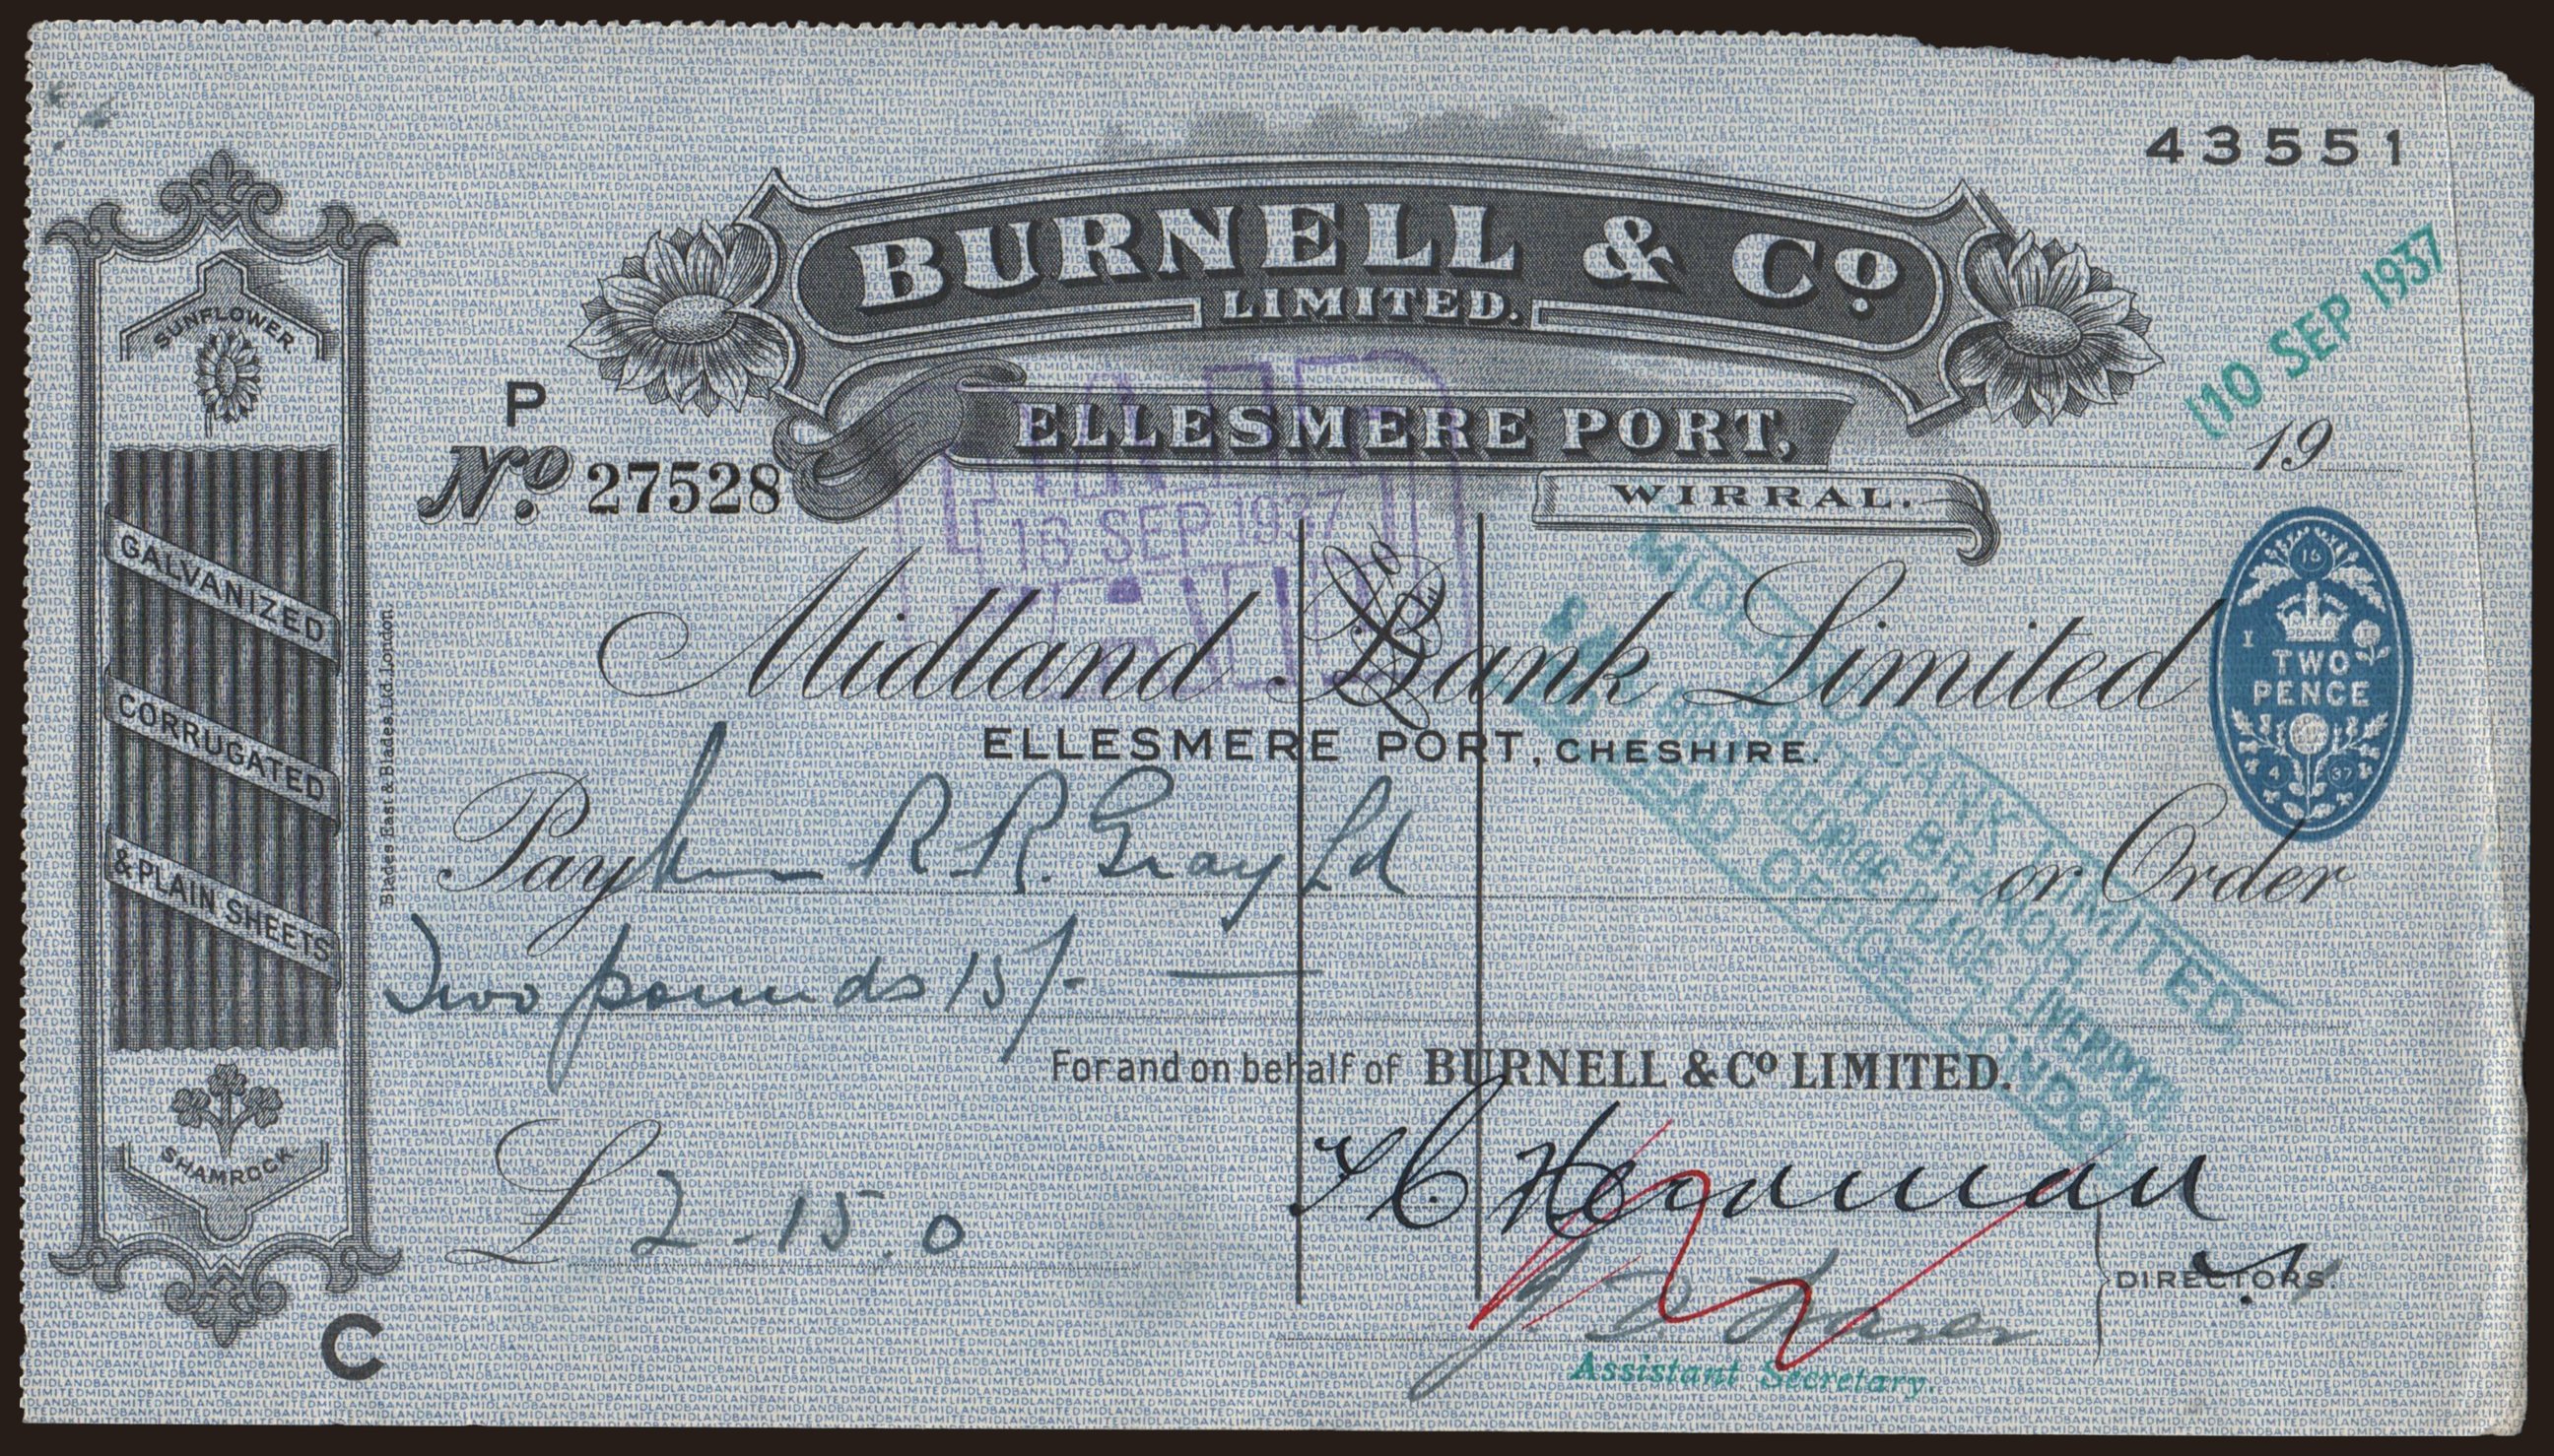 43551
BURNELL & Cº
LIMITED.
10 SEP 1937
SUNFLOWER.
ELLESMERE PORT,
19
P
Nº 27528
WIRRAL.
16 SEP 1937
GALVANIZED
CORRUGATED
& PLAIN SHEETS
SHAMROCK.
Blades East & Blades Ltd. London.
Midland Bank Limited
ELLESMERE PORT, CHESHIRE.
16
I
TWO
PENCE
4 37
MIDLAND BANK LIMITED
SOUTH BRANCH
GEORGE PLACE, LIVERPOOL
HEAD OFFICE LONDON
Pay R. R. Gray Ld or Order
Two pounds 15/-
For and on behalf of BURNELL & Cº LIMITED.
£ 2-15.0
DIRECTORS.
Assistant Secretary.
C